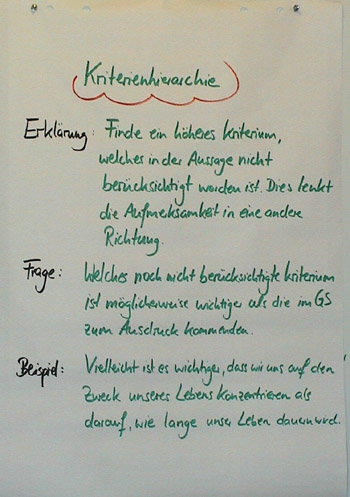 Kriterienhierarchie
Erklärung: Finde ein höheres Kriterium,
welches in der Aussage nicht
berücksichtigt worden ist. Dies lenkt
die Aufmerksamkeit in eine andere
Richtung.
Frage: Welches noch nicht berücksichtigte Kriterium
ist möglicherweise wichtiger als die im GS
zum Ausdruck kommenden.
Beispiel: Vielleicht ist es wichtiger, dass wir uns auf den
Zweck unseres Lebens konzentrieren als
darauf, wie lange unser Leben dauern wird.